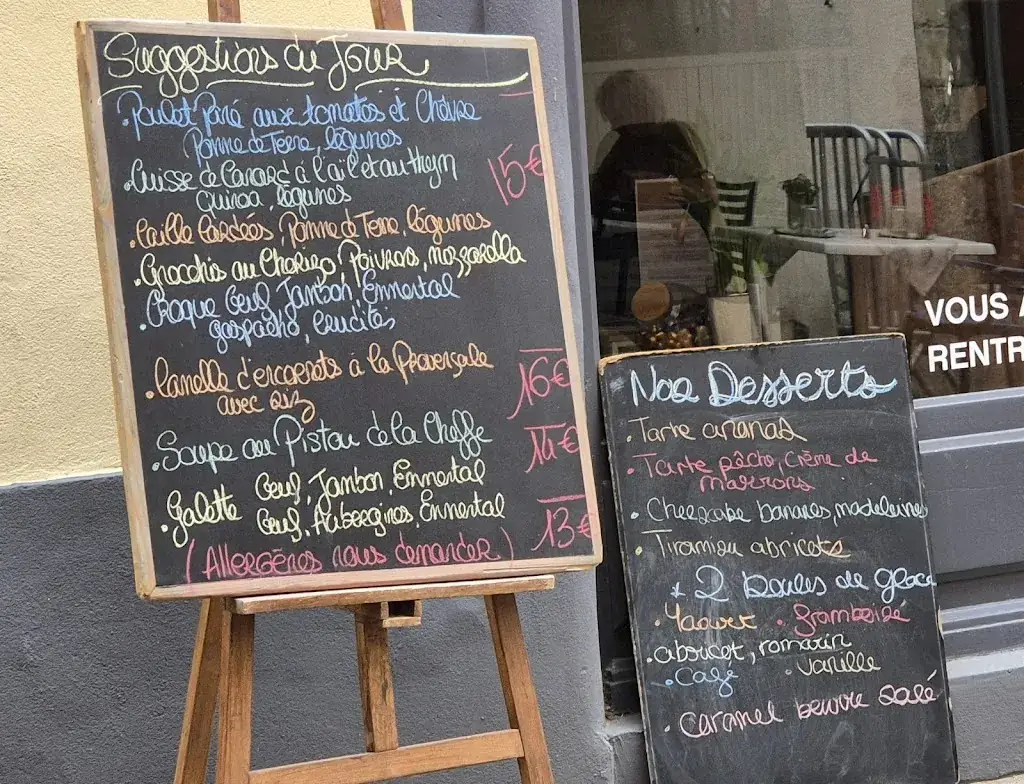 Suggestions du Jour
• Poulet Pané aux tomates et Chèvre
Pomme de Terre, légumes
• Cuisse de Canard à l'ail et au thym
quinoa, légumes
15€
• Caille lardées, Pomme de Terre, légumes
• Gnocchis au Chorizo, Poivrons, mozzarella
• Croque Oeuf, Jambon, Emmental
gaspacho, crudités
• Cassolette d'escargots à la Provençale
avec Riz
16€
• Soupe au Pistou de la Cheffe
14€
• Galette Oeuf, Jambon, Emmental
Oeuf, Aubergines, Emmental
13€
(Allergènes nous demander)
Nos Desserts
• Tarte ananas
• Tarte pêche, Crème de
marrons
• Cheescake bananes, madeleines
• Tiramisu abricots
• 2 boules de glace
• Yaourt • framboise
• abricot, romarin
• Café • Vanille
• Caramel beurre salé
VOUS
RENTR